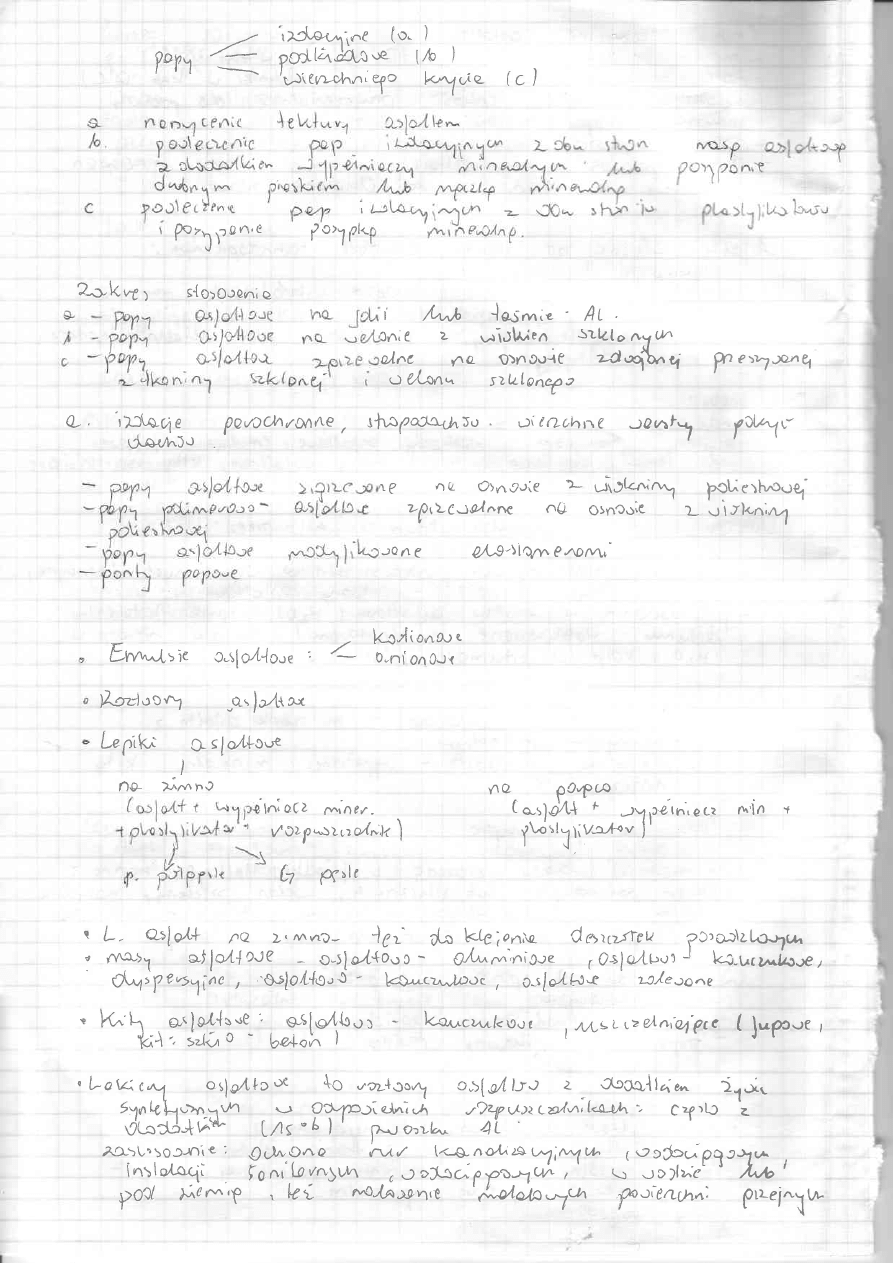 izolacyjne (a)
papy podkładowe (b)
wierzchniego krycia (c)
a nasycenie tektury asfaltem
b. powleczenie pap izolacyjnych z obu stron masą asfaltową
z dodatkiem wypełniaczy mineralnych lub posypanie
drobnym piaskiem lub mączką mineralną
c powleczenie pap izolacyjnych z obu stron
i posypanie posypką mineralną.
Zakres stosowania
a – papy asfaltowe na folii lub taśmie AL.
b – papy asfaltowe na welonie z włókien szklanych
c – papy asfaltowe zgrzewalne na osnowie zdwojonej przeszywanej
z tkaniny szklanej i welonu szklanego
a. izolacje parochronne, stropodachów. wierzchnie warstwy pokryć
dachów
– papy asfaltowe zgrzewane na osnowie z włókniny poliestrowej
– papy polimerowo- asfaltowe zgrzewalne na osnowie z włókniny
poliestrowej
– papy asfaltowe modyfikowane elastomerami
– gonty papowe
kationowe
• Emulsje asfaltowe : anionowe
• Roztwory asfaltowe
• Lepiki asfaltowe
na zimno na gorąco
(asfalt + wypełniacz miner. (asfalt + wypełniacz min +
+ plastyfikator + rozpuszczalnik) plastyfikator)
p. półgęste G gęste
• L. asfalt na zimno- też do klejenia deszczułek posadzkowych
• masy asfaltowe – asfaltowo- aluminiowe, asfaltowo- kauczukowe,
dyspersyjne, asfaltowo- kauczukowe, asfaltowe zalewowe
• Kity asfaltowe: asfaltowo - kauczukowe, uszczelniające (fugowe,
kit: szkło - beton)
• Lakiery asfaltowe to roztwory asfaltów z dodatkiem żywic
syntetycznych w odpowiednich rozpuszczalnikach: często z
dodatkiem (15%) proszku AL
zastosowanie: ochrona rur kanalizacyjnych, wodociągowych,
instalacji sanitarnych, wodociągowych, w wodzie lub
pod ziemią, też malowanie metalowych powierzchni